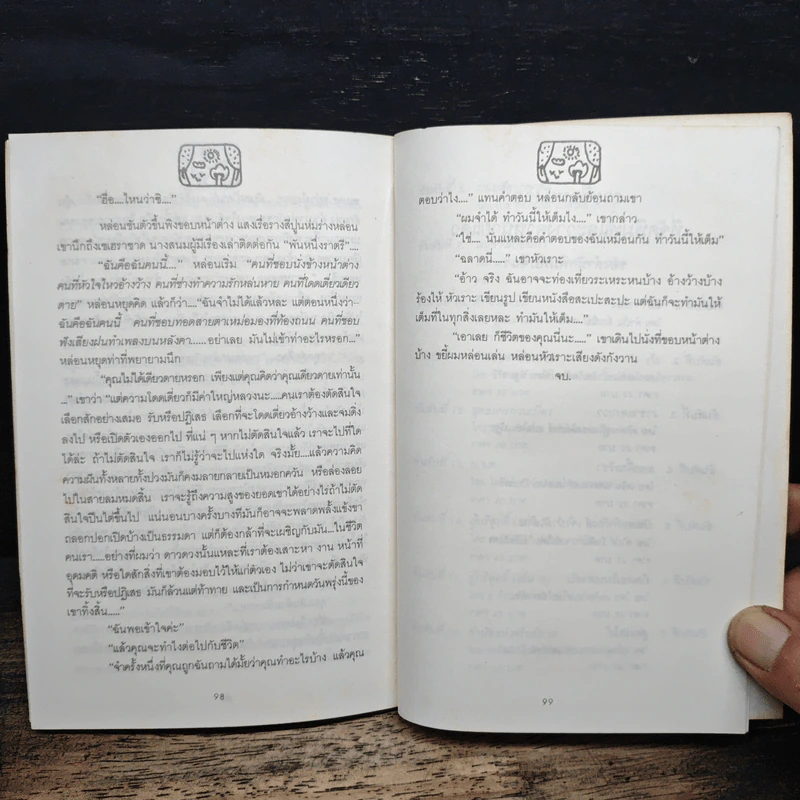 “ฮื่อ....ไหนว่าซิ....”
หล่อนขันตัวขึ้นพิงขอบหน้าต่าง แสงเรื่อรางสีปูนห่มร่างหล่อน
เขานึกถึงเชเฮราซาด นางสนมผู้มีเรื่องเล่าติดต่อกัน “พันหนึ่งราตรี”....
“ฉันคือฉันคนนี้....” หล่อนเริ่ม “คนที่ชอบนั่งข้างหน้าต่าง
คนที่หัวใจไหวอ้างว้าง คนที่ช่างทำความรักหล่นหาย คนที่โดดเดี่ยวเดียว
ดาย” หล่อนหยุดคิด แล้วก็ว่า....“ฉันจำไม่ได้แล้วหละ แต่ตอนหนึ่งว่า--
ฉันคือฉันคนนี้ คนที่ชอบทอดสายตาเหม่อมองที่ท้องถนน คนที่ชอบ
ฟังเสียงฝนทำเพลงบนหลังคา.....อย่าเลย มันไม่เข้าท่าอะไรหรอก...”
หล่อนหยุดท่าที่พยายามนึก
“คุณไม่ได้เดียวดายหรอก เพียงแต่คุณคิดว่าคุณเดียวดายเท่านั้น
...” เขาว่า “แต่ความโดดเดี่ยวก็มีค่าใหญ่หลวงนะ.....คนเราต้องตัดสินใจ
เลือกสักอย่างเสมอ รับหรือปฏิเสธ เลือกที่จะโดดเดี่ยวอ้างว้างและจมดิ่ง
ลงไป หรือเปิดตัวเองออกไป ที่แน่ ๆ หากไม่ตัดสินใจแล้ว เราจะไปที่ใด
ได้ล่ะ ถ้าไม่ตัดสินใจ เราก็ไม่รู้ว่าจะไปแห่งใด จริงมั้ย....แล้วความคิด
ความฝันทั้งหลายทั้งปวงมันก็คงมลายกลายเป็นหมอกควัน หรือล่องลอย
ไปในสายลมหมดสิ้น เราจะรู้ถึงความสูงของยอดเขาได้อย่างไรถ้าไม่ตัด
สินใจปีนไต่ขึ้นไป แน่นอนบางครั้งบางทีมันก็อาจจะพลาดพลั้งแข้งขา
ถลอกปอกเปิดบ้างเป็นธรรมดา แต่ก็ต้องกล้าที่จะเผชิญกับมัน...ในชีวิต
คนเรา.....อย่างที่ผมว่า ดาวดวงนั้นแหละที่เราต้องเสาะหา งาน หน้าที่
อุดมคติ หรือใดสักสิ่งที่เขาต้องมอบไว้ให้แก่ตัวเอง ไม่ว่าเขาจะตัดสินใจ
ที่จะรับหรือปฏิเสธ มันก็ล้วนแต่ท้าทาย และเป็นการกำหนดวันพรุ่งนี้ของ
เขาทั้งสิ้น.....”
“ฉันพอเข้าใจค่ะ”
“แล้วคุณจะทำไงต่อไปกับชีวิต”
“จำครั้งหนึ่งที่คุณถูกฉันถามได้มั้ยว่าคุณทำอะไรบ้าง แล้วคุณ
98
ตอบว่าไง....” แทนคำตอบ หล่อนกลับย้อนถามเขา
“ผมจำได้ ทำวันนี้ให้เต็มไง....” เขากล่าว
“ใช่.... นั่นแหละคือคำตอบของฉันเหมือนกัน ทำวันนี้ให้เต็ม”
“ฉลาดนี่.....” เขาหัวเราะ
“อ้าว จริง ฉันอาจจะท่องเที่ยวระเหระหนบ้าง อ้างว้างบ้าง
ร้องไห้ หัวเราะ เขียนรูป เขียนหนังสือสะเปะสะปะ แต่ฉันก็จะทำมันให้
เต็มที่ในทุกสิ่งเลยหละ ทำมันให้เต็ม....”
“เอาเลย ก็ชีวิตของคุณนี่นะ....” เขาเดินไปนั่งที่ขอบหน้าต่าง
บ้าง ขยี้ผมหล่อนเล่น หล่อนหัวเราะเสียงดังกังวาน
จบ.
99